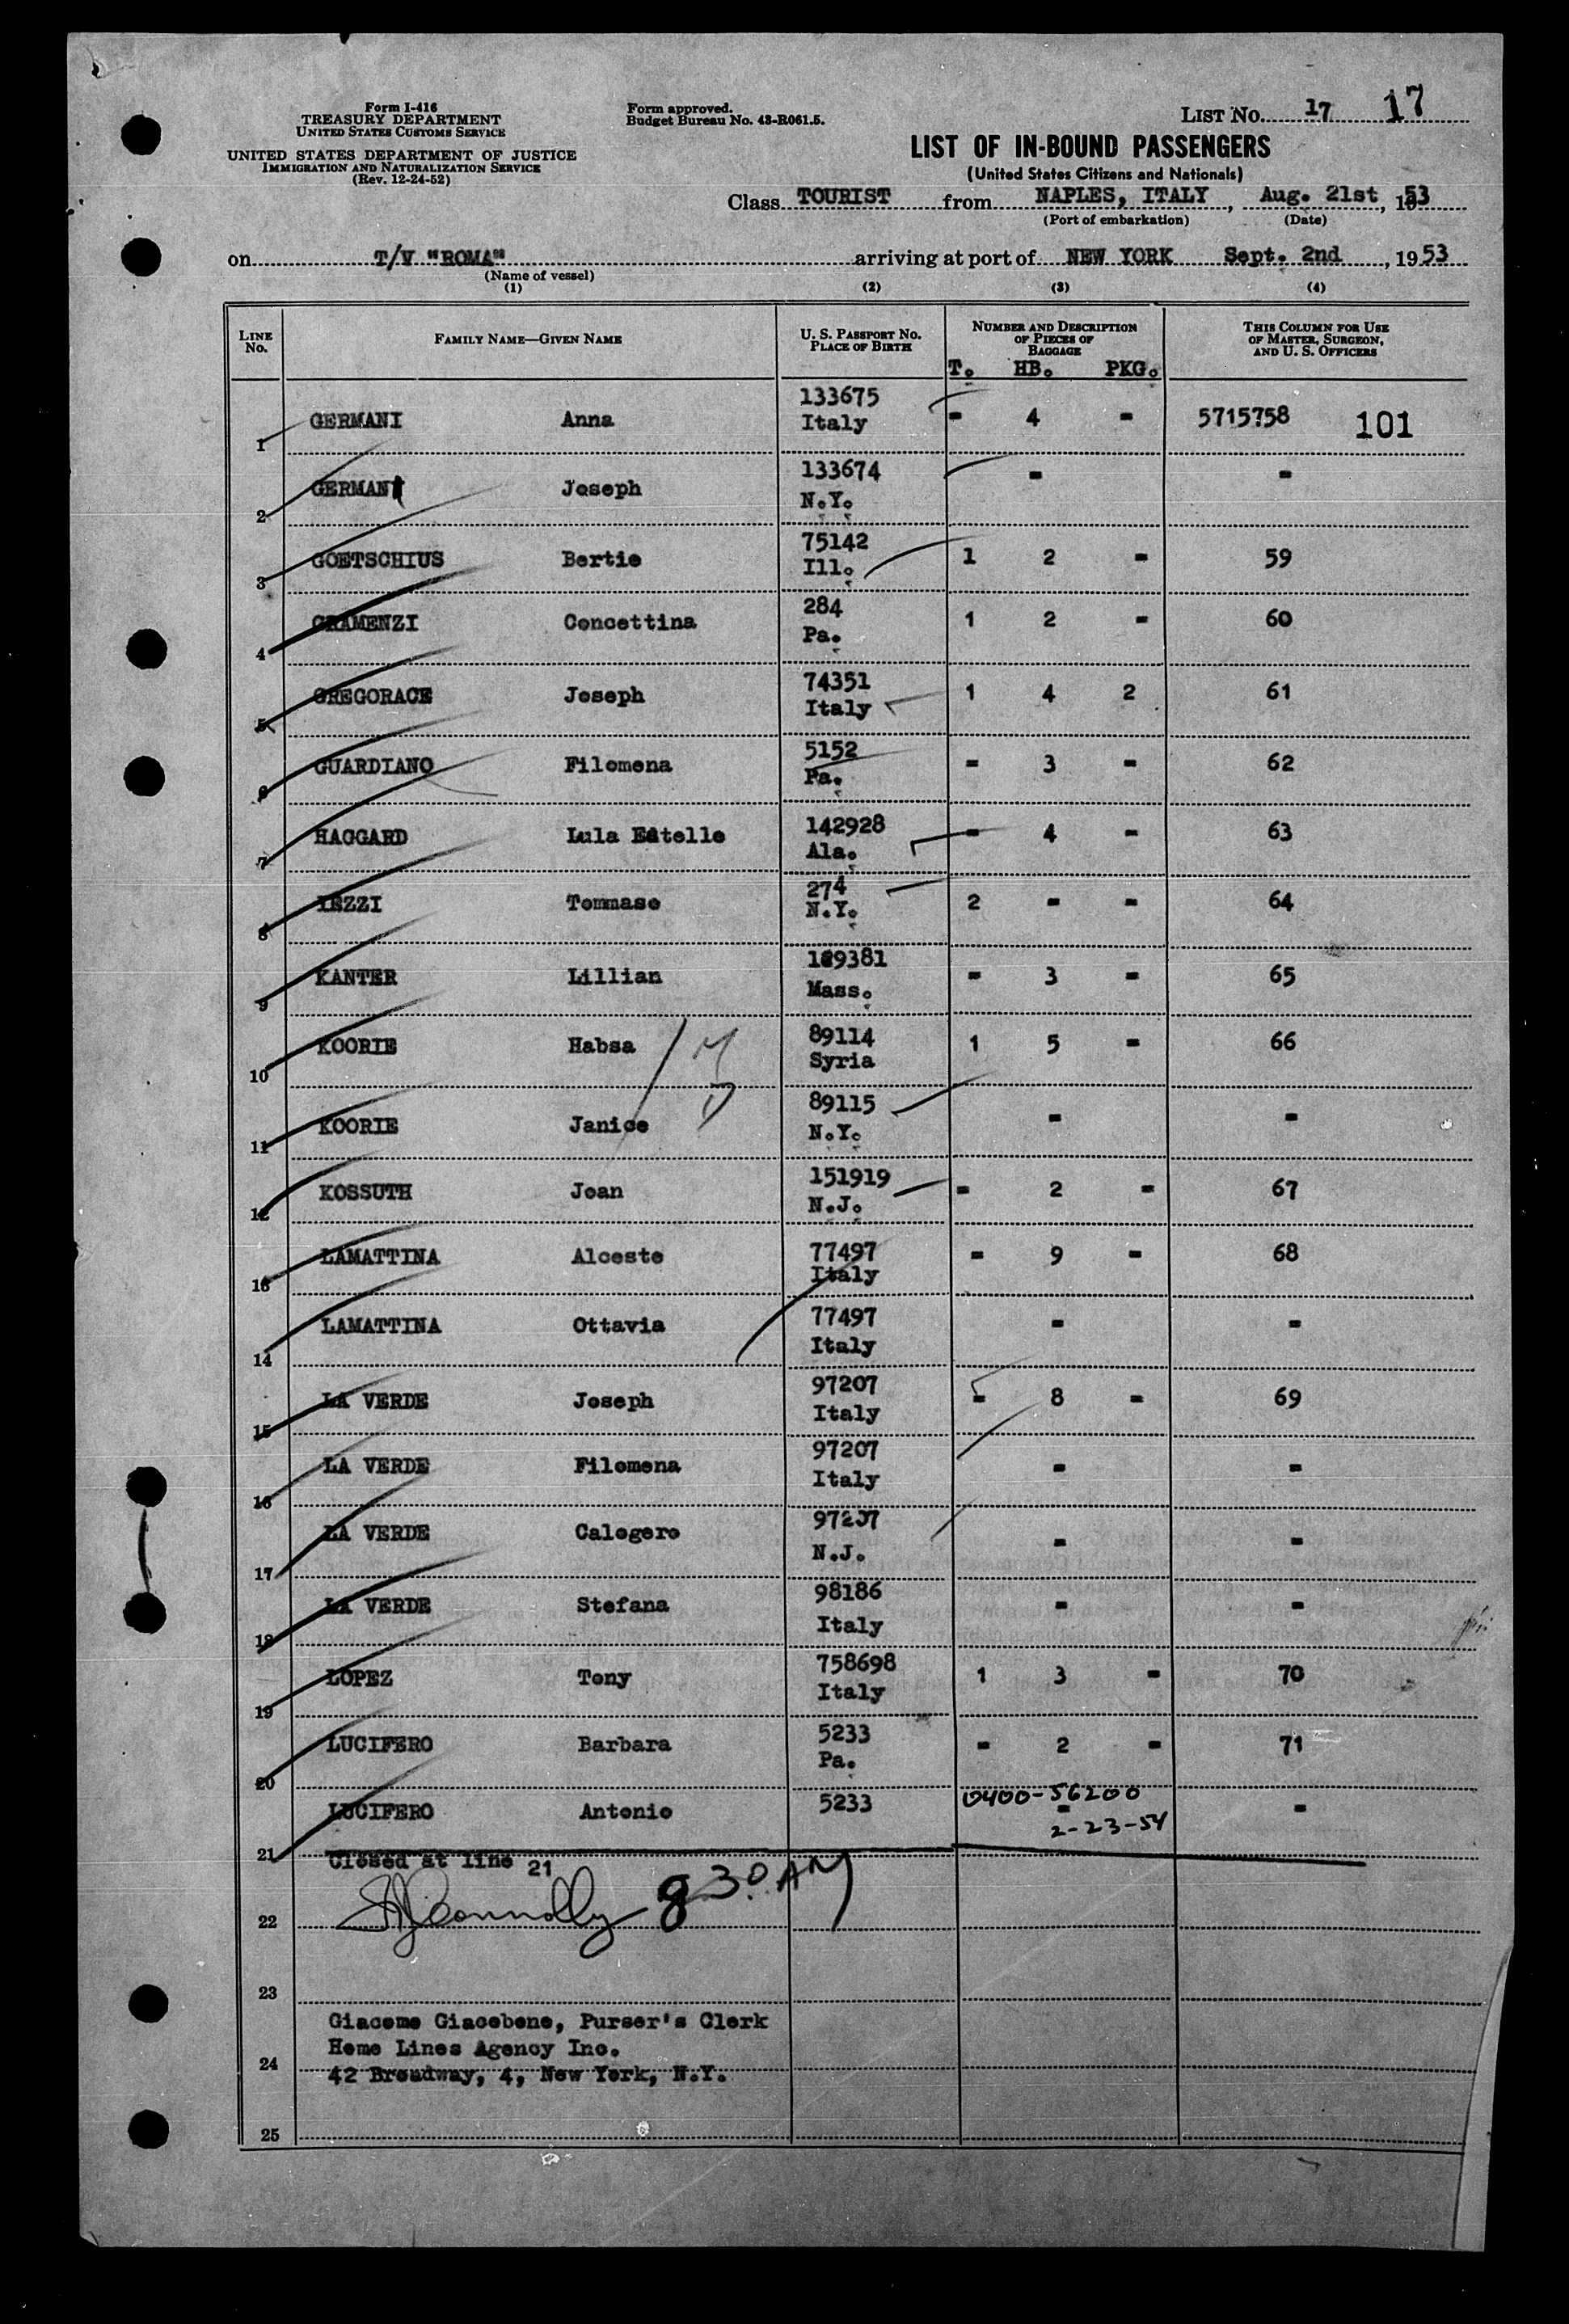 Form I-416
TREASURY DEPARTMENT
UNITED STATES CUSTOMS SERVICE
UNITED STATES DEPARTMENT OF JUSTICE
IMMIGRATION AND NATURALIZATION SERVICE
(Rev. 12-24-52)
Form approved.
Budget Bureau No. 43-R061.5.
LIST No. 17 17
LIST OF IN-BOUND PASSENGERS
(United States Citizens and Nationals)
Class TOURIST from NAPLES, ITALY, Aug. 21st, 1953
(Port of embarkation) (Date)
on T/V "ROMA" arriving at port of NEW YORK Sept. 2nd, 1953
(Name of vessel)
(1) (2) (3) (4)
LINE No. FAMILY NAME—GIVEN NAME U. S. PASSPORT No. PLACE OF BIRTH NUMBER AND DESCRIPTION OF PIECES OF BAGGAGE THIS COLUMN FOR USE OF MASTER, SURGEON, AND U. S. OFFICERS
T. HB. PKG.
1 GERMANI Anna 133675 Italy - 4 - 5715758 101
2 GERMANI Joseph 133674 N.Y. - -
3 GOETSCHIUS Bertie 75142 Ill. 1 2 - 59
4 GRAMENZI Concettina 284 Pa. 1 2 - 60
5 GREGORACE Joseph 74351 Italy 1 4 2 61
6 GUARDIANO Filomena 5152 Pa. - 3 - 62
7 HAGGARD Lula Estelle 142928 Ala. - 4 - 63
8 IEZZI Tommaso 274 N.Y. 2 - - 64
9 KANTER Lillian 129381 Mass. - 3 - 65
10 KOORIE Habsa 89114 Syria 1 5 - 66
11 KOORIE Janice 89115 N.Y. - -
12 KOSSUTH Joan 151919 N.J. - 2 - 67
13 LAMATTINA Alceste 77497 Italy - 9 - 68
14 LAMATTINA Ottavia 77497 Italy - -
15 LA VERDE Joseph 97207 Italy - 8 - 69
16 LA VERDE Filomena 97207 Italy - -
17 LA VERDE Calogero 97207 N.J. - -
18 LA VERDE Stefana 98186 Italy - -
19 LOPEZ Tony 758698 Italy 1 3 - 70
20 LUCIFERO Barbara 5233 Pa. - 2 - 71
21 LUCIFERO Antonio 5233 - -
0400-56200
2-23-54
Closed at line 21
22 Connolly 8 30 AM
23
Giacomo Giacobone, Purser's Clerk
24 Home Lines Agency Inc.
42 Broadway, 4, New York, N.Y.
25